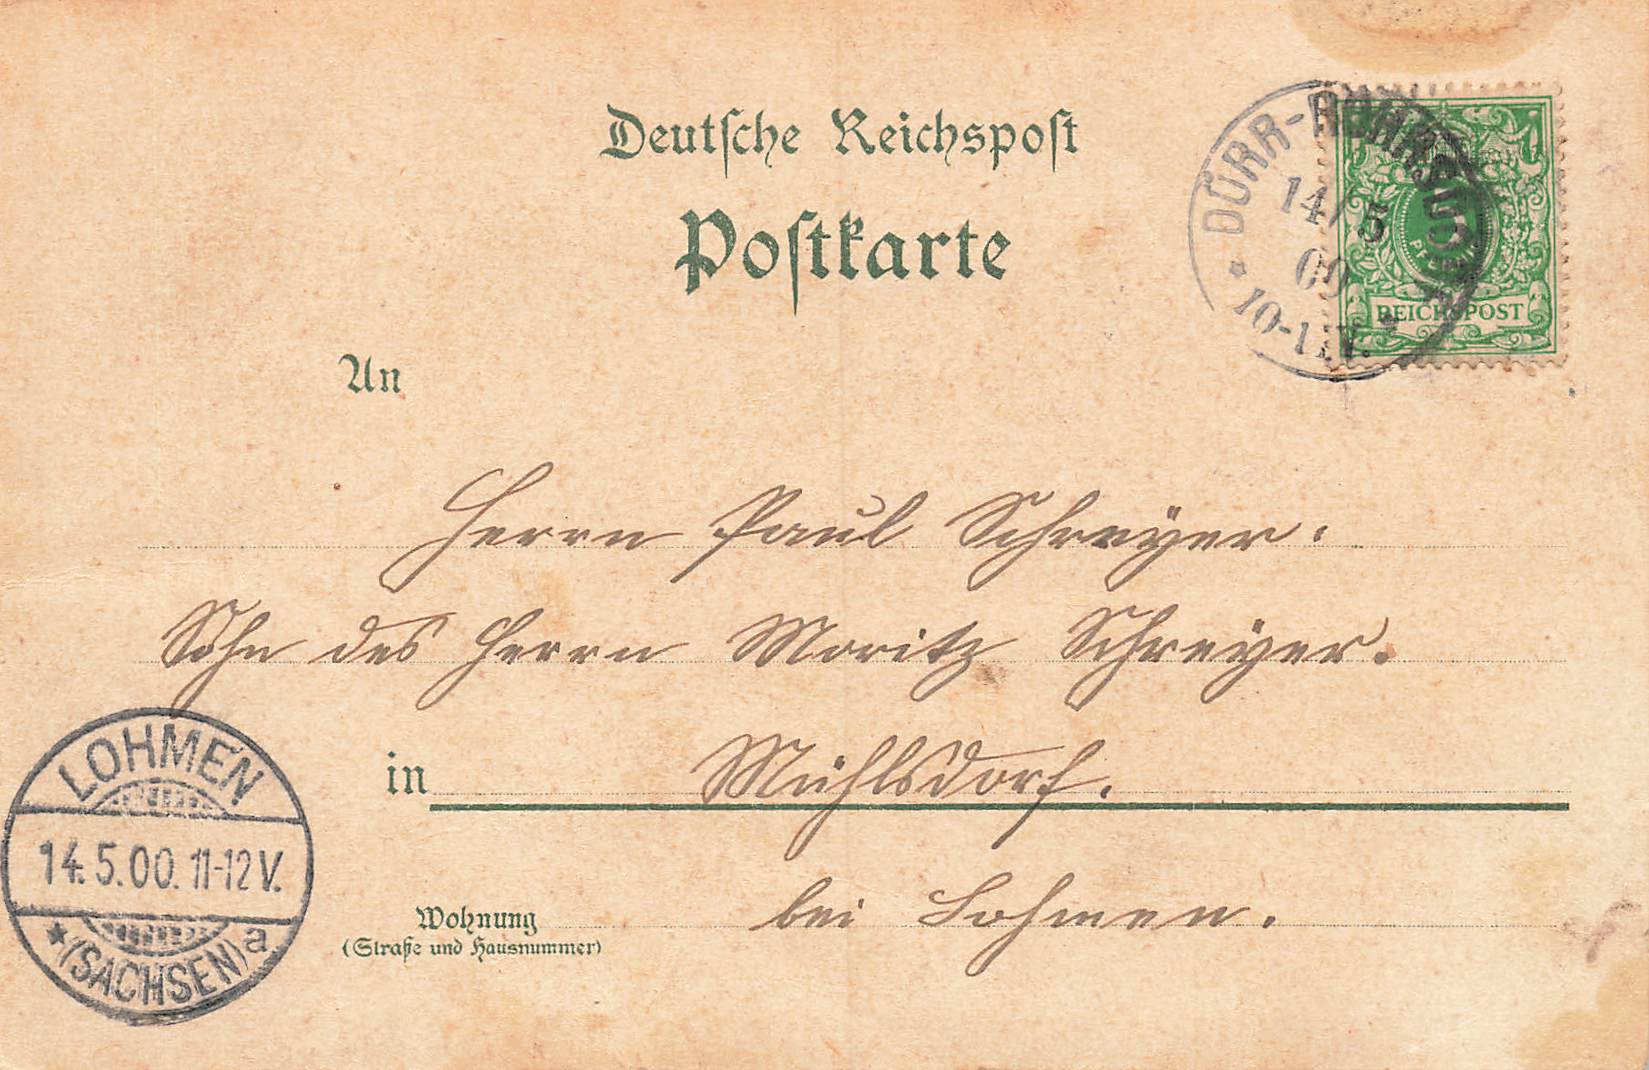 Deutsche Reichspost
Postkarte
DÜRR-RÖHRSDORF
14/5
00
10-11V.
5
PFENNIG
REICHSPOST
An
Herrn Paul Schreyer.
Sohn des Herrn Moritz Schreyer.
in Mühlsdorf.
Wohnung
(Straße und Hausnummer)
bei Lohmen.
LOHMEN
14.5.00.11-12V.
*(SACHSEN)a.